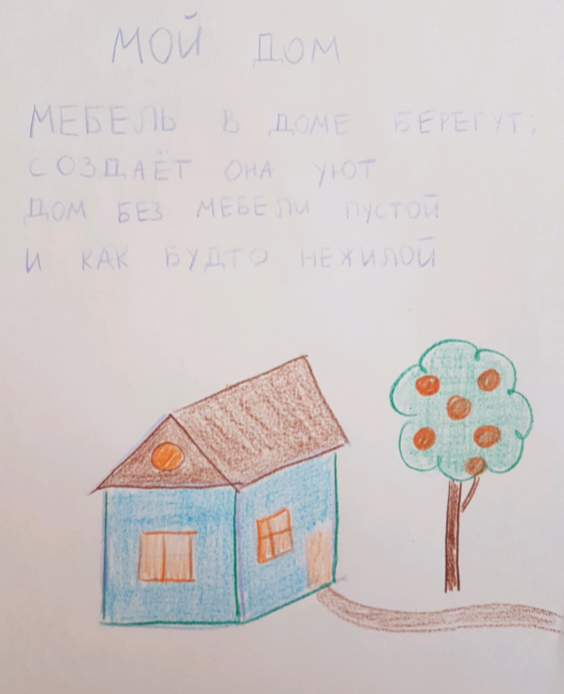 МОЙ ДОМ
МЕБЕЛЬ В ДОМЕ БЕРЕГУТ,
СОЗДАЁТ ОНА УЮТ
ДОМ БЕЗ МЕБЕЛИ ПУСТОЙ
И КАК БУДТО НЕЖИЛОЙ